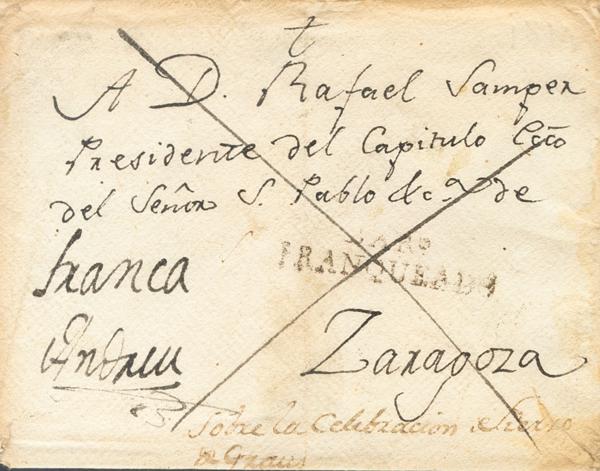 A D. Rafael Samper
Presidente del Capitulo Ecco
del Señor S. Pablo &c.a de
franca
FRANQUEADO
Andreu
Zaragoza
Sobre la Celebracion
de Graus